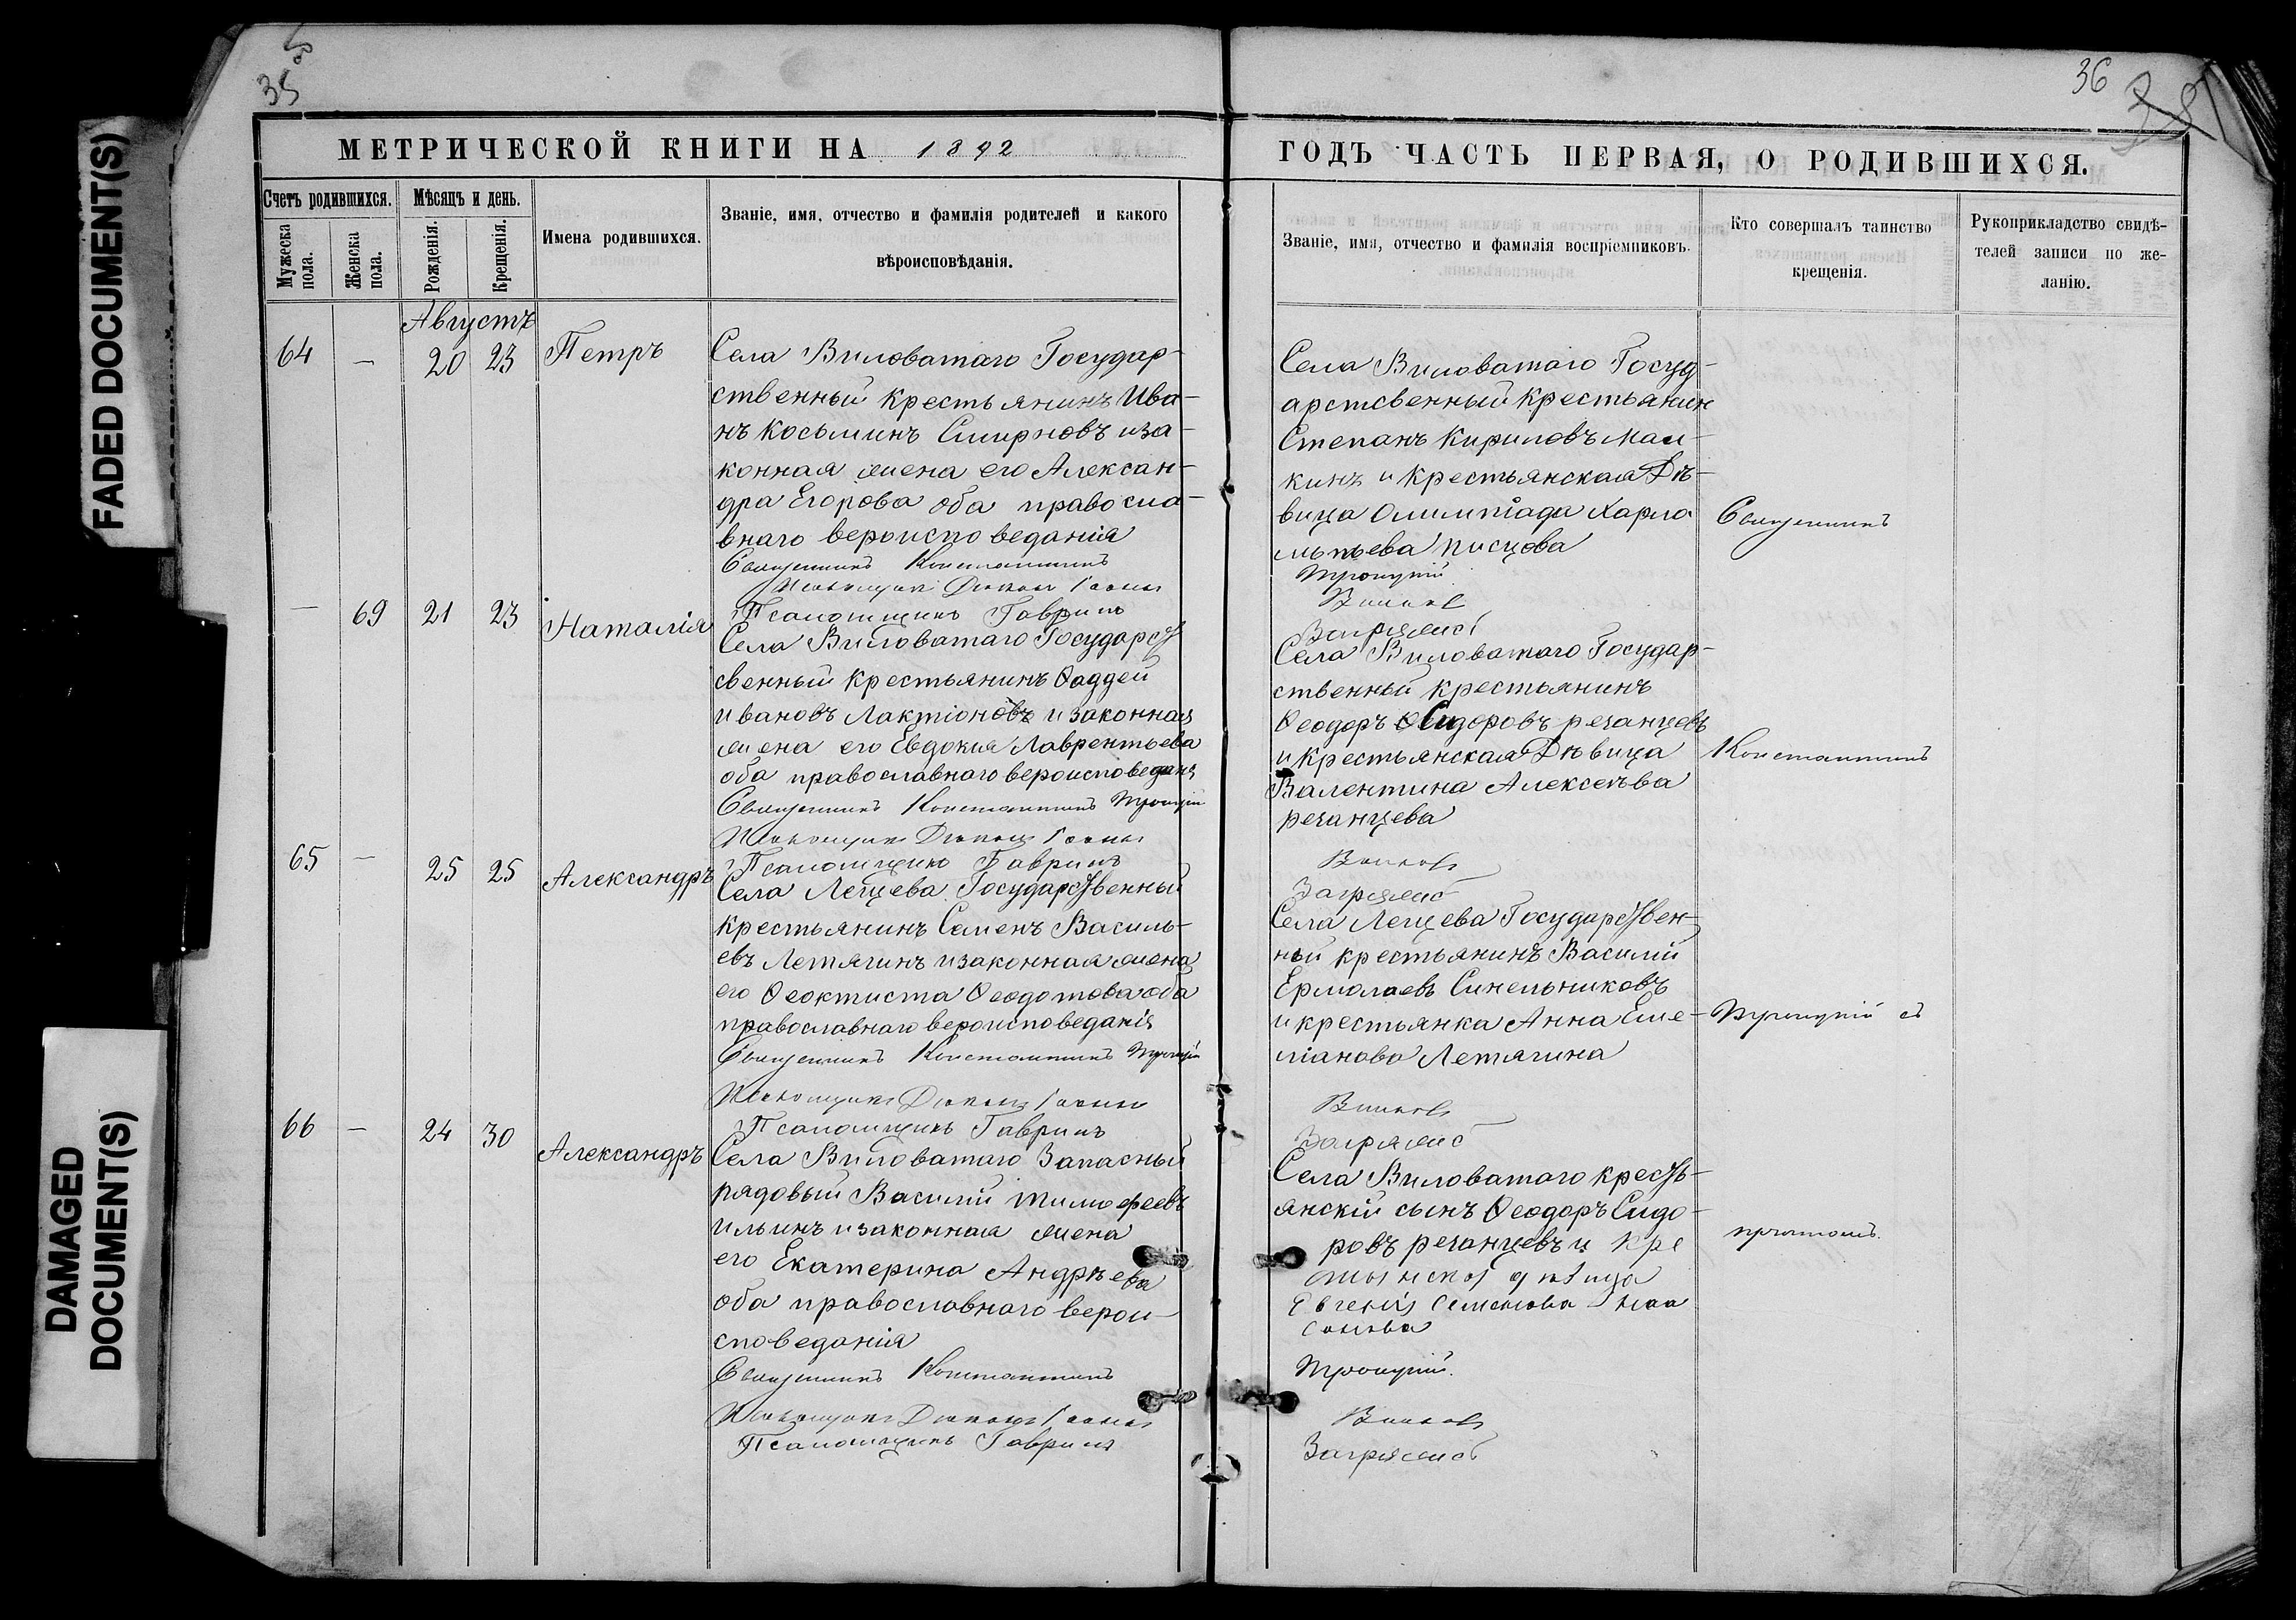 35
36
FADED DOCUMENT(S)
DAMAGED
DOCUMENT(S)
МЕТРИЧЕСКОЙ КНИГИ НА 1892
ГОДЪ ЧАСТЬ ПЕРВАЯ, О РОДИВШИХСЯ.
Счетъ родившихся.
Мужеска пола.
Женска пола.
Мѣсяцъ и день.
Рожденія.
Крещенія.
Имена родившихся.
Званіе, имя, отчество и фамилія родителей и какого
вѣроисповѣданія.
Званіе, имя, отчество и фамилія воспріемниковъ.
Кто совершалъ таинство
крещенія.
Рукоприкладство свидѣ-
телей записи по же-
ланію.
Августъ
64 — 20 23 Петръ
Села Виловатаго Государ-
ственный крестьянинъ Ива-
нъ Косьминъ Смирновъ иза-
конная жена его Алексан-
дра Егорова оба правосла-
внаго вероисповеданія
Священникъ Константинъ
Псаломщикъ Діаконъ Іоаннъ
Псаломщикъ Гавріилъ
Села Виловатаго Госуд-
арственный крестьянин
Степанъ Кириловъ Мал-
кинъ и крестьянская Дѣ-
вица Олимпіада Харла
мпьева Писцова
Троицкій
Загряжс
Священникъ
— 69 21 23 Наталія
Села Виловатаго Государст
свенный крестьянинъ Ѳаддей
Ивановъ Лактіоновъ и законная
жена его Евдокия Лаврентьева
оба православнаго вероисповедания
Священникъ Константинъ Троицкій
Псаломщикъ Діаконъ Іоаннъ
Псаломщикъ Гавріилъ
Села Виловатаго Государ-
ственный крестьянинъ
Ѳеодоръ Сидоровъ резанцевъ
и крестьянская Дѣвица
Валентина Алексеѣва
резанцева
Загряжс
Константинъ
65 — 25 25 Александръ
Села Лещева Государственный
крестьянинъ Семенъ Василь-
евъ Летягинъ и законная жена
его Ѳеоктиста Ѳеодотова оба
православнаго вероисповеданія
Священникъ Константинъ Троицкій
Псаломщикъ Діаконъ Іоаннъ
Псаломщикъ Гавріилъ
Села Лещева Государствен-
ный крестьянинъ Василій
Ермолаевъ Синельниковъ
и крестьянка Анна Еме-
ліанова Летягина
Загряжс
Троицкій съ
66 — 24 30 Александръ
Села Виловатаго Запасный
рядовый Василій Тимофеевъ
Ильинъ и законная жена
его Екатерина Андрѣева
оба православнаго верои-
споведанія
Священникъ Константинъ
Псаломщикъ Діаконъ Іоаннъ
Псаломщикъ Гавріилъ
Села Виловатаго кресть-
янскій сынъ Ѳеодоръ Сидо-
ровъ резанцевъ и кре
стьянская дѣвица
Евгенія Семенова
Троицкій.
Загряжс
причтомъ.